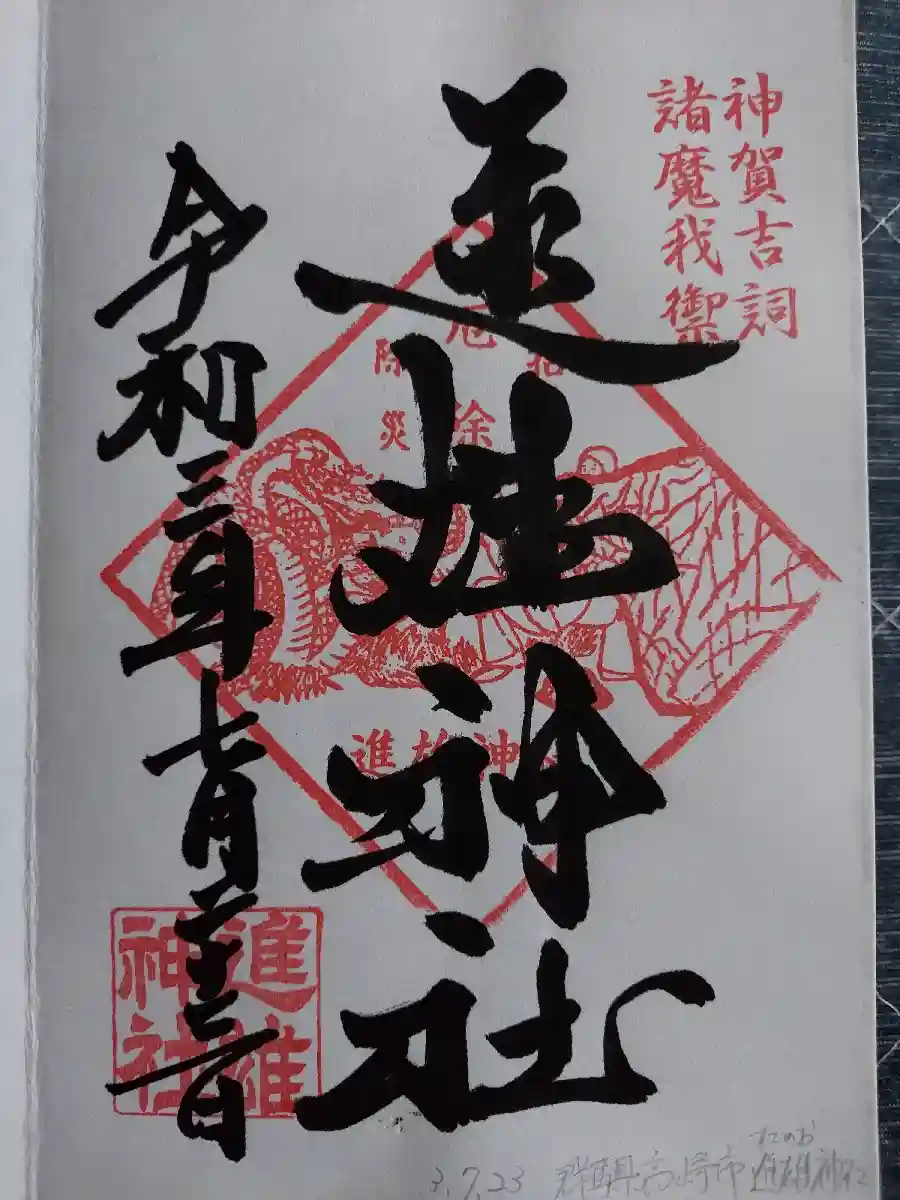 神賀吉詞
諸魔我禦
進雄神社
厄除
招
除災
進雄神社
令和三年七月二十三日
進雄
神社
すさのお
3.7.23 群馬県高崎市 進雄神社